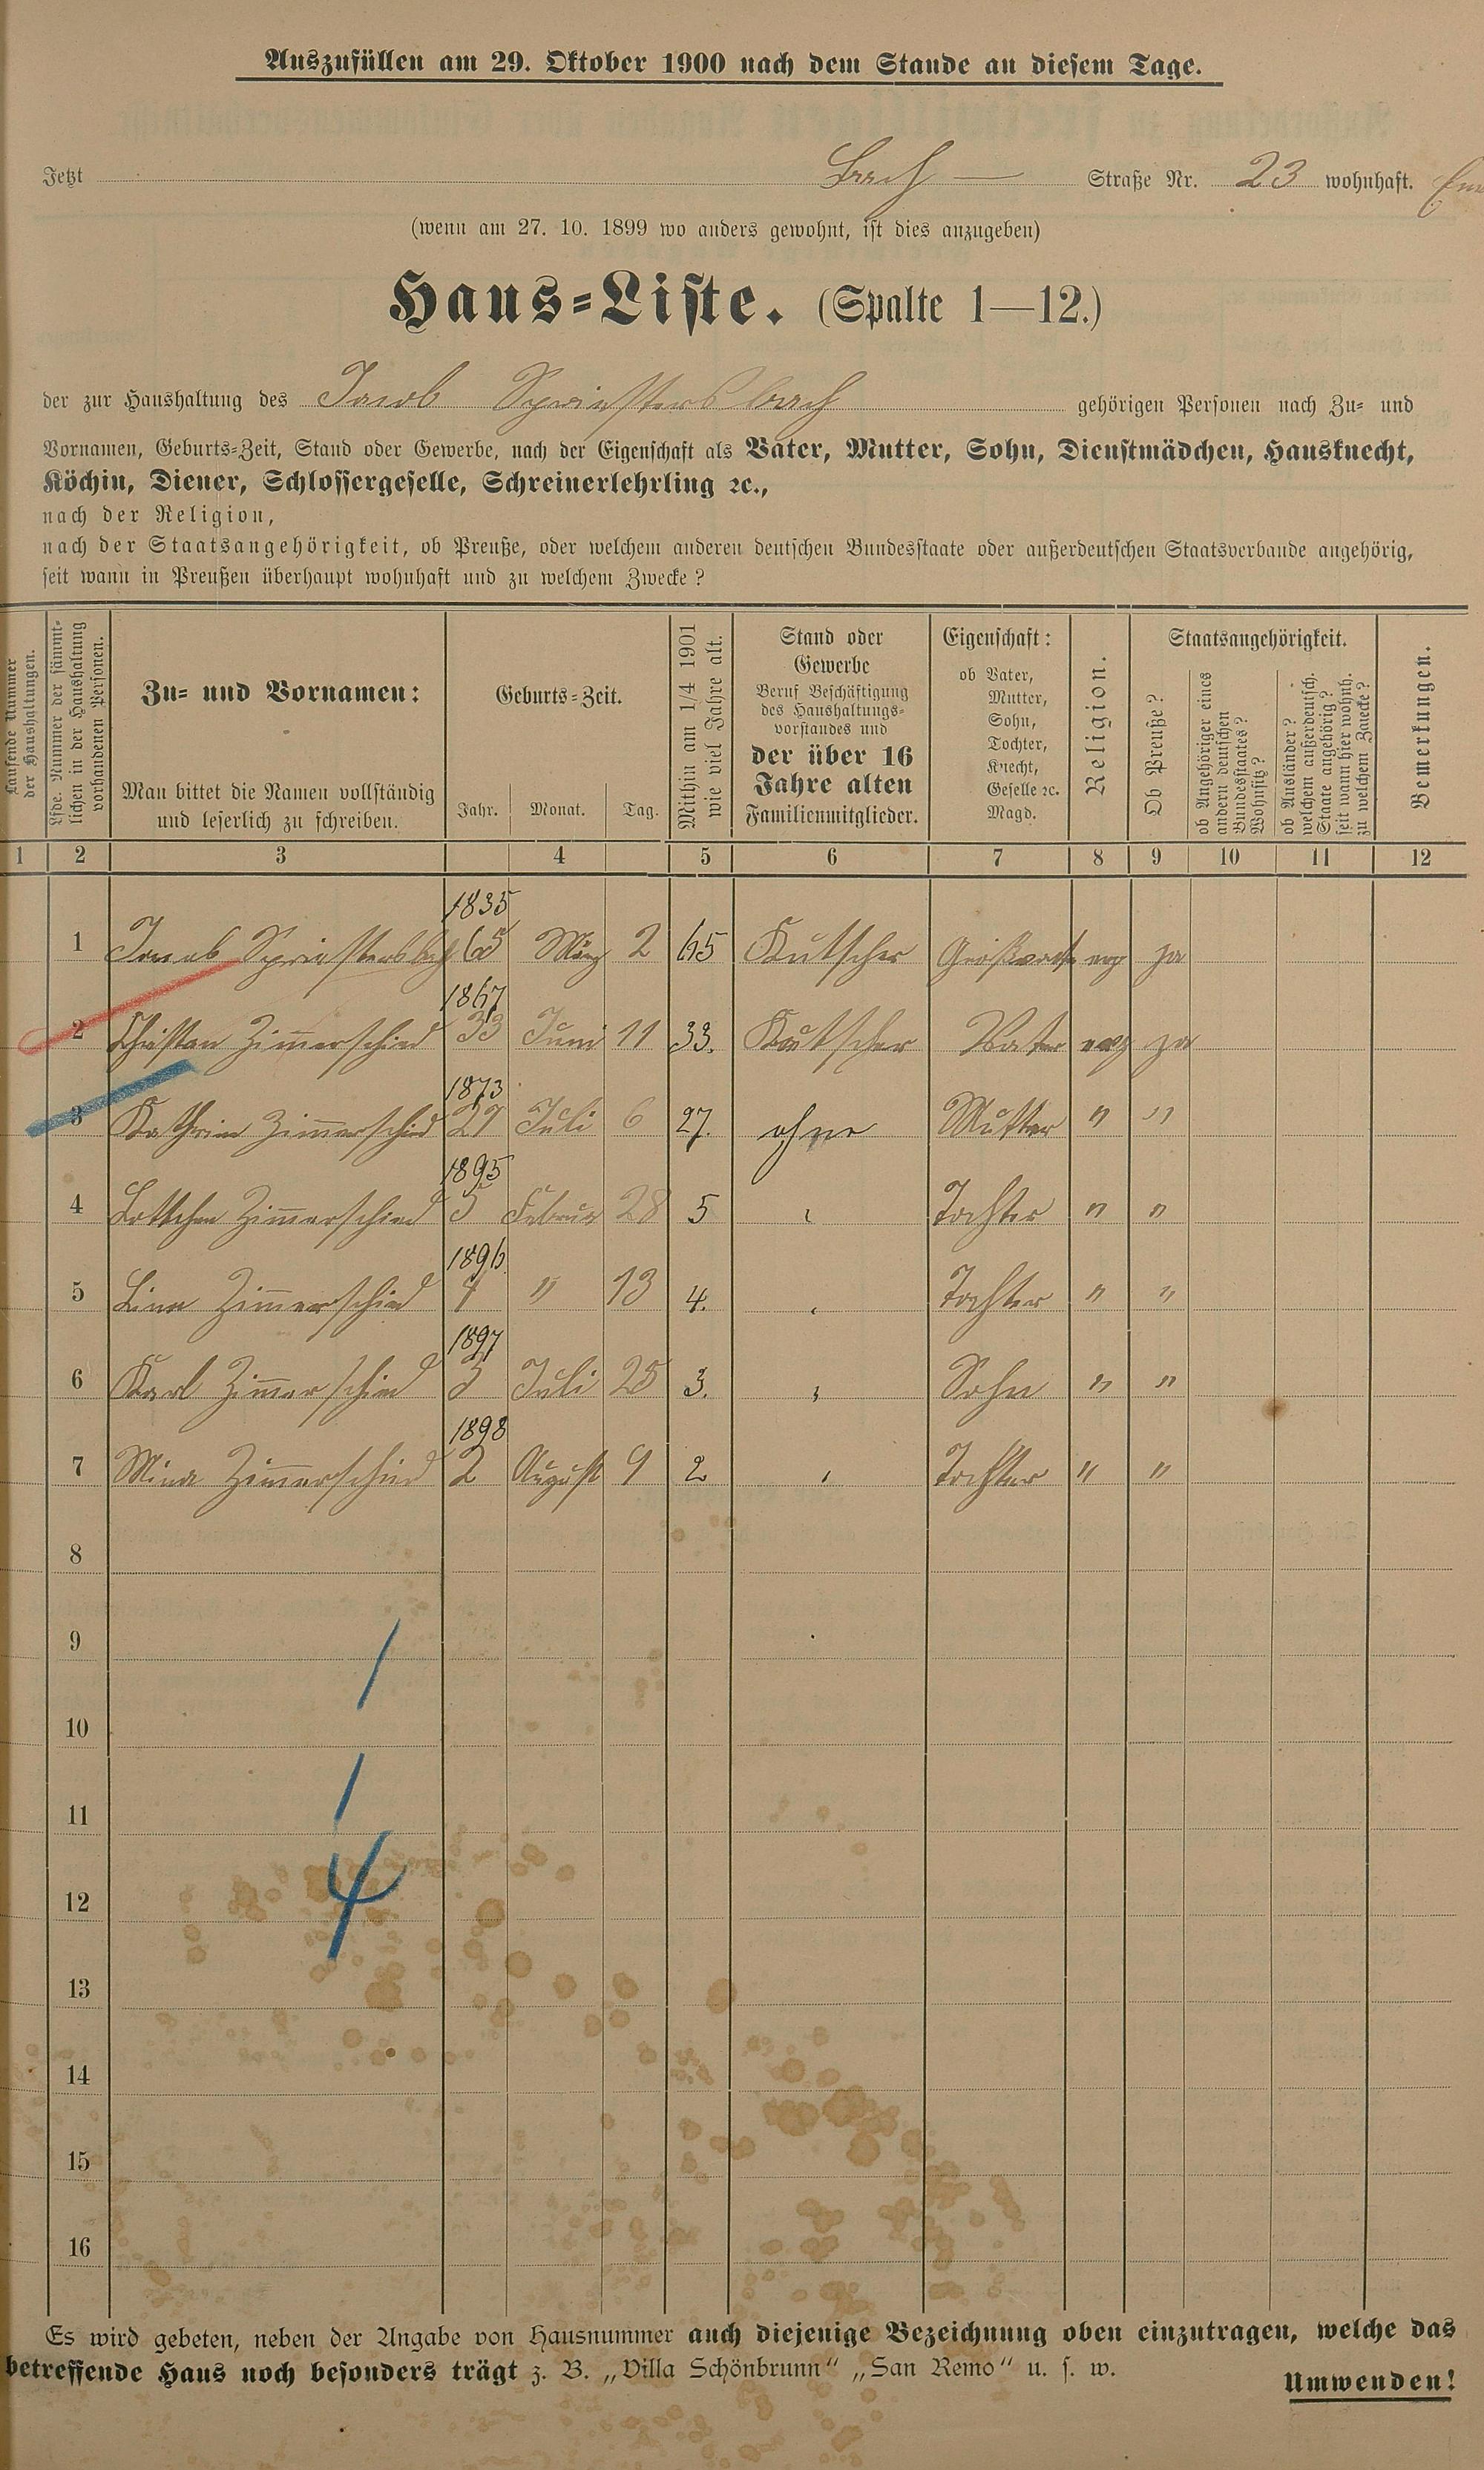 Auszufüllen am 29. Oktober 1900 nach dem Stande an diesem Tage.
Jetzt Bach — Straße Nr. 23 wohnhaft.
(wenn am 27. 10. 1899 wo anders gewohnt, ist dies anzugeben)
Haus=Liste. (Spalte 1—12.)
der zur Haushaltung des Jacob Spriestersbach gehörigen Personen nach Zu= und
Vornamen, Geburts=Zeit, Stand oder Gewerbe, nach der Eigenschaft als Vater, Mutter, Sohn, Dienstmädchen, Hausknecht,
Köchin, Diener, Schlossergeselle, Schreinerlehrling ꝛc.,
nach der Religion,
nach der Staatsangehörigkeit, ob Preuße, oder welchem anderen deutschen Bundesstaate oder außerdeutschen Staatsverbande angehörig,
seit wann in Preußen überhaupt wohnhaft und zu welchem Zwecke?
Laufende Nummer
der Haushaltungen.
Lfde. Nummer der sämmt=
lichen in der Haushaltung
vorhandenen Personen.
Zu= und Vornamen:
Man bittet die Namen vollständig
und leserlich zu schreiben.
Geburts=Zeit.
Jahr. Monat. Tag.
Mithin am 1/4 1901
wie viel Jahre alt.
Stand oder
Gewerbe
Beruf Beschäftigung
des Haushaltungs=
vorstandes und
der über 16
Jahre alten
Familienmitglieder.
Eigenschaft:
ob Vater,
Mutter,
Sohn,
Tochter,
Knecht,
Geselle ꝛc.
Magd.
Religion.
Staatsangehörigkeit.
Ob Preuße?
ob Angehöriger eines
andern deutschen
Bundesstaates?
Wohnsitz?
ob Ausländer?
welchem außerdeutsch.
Staate angehörig?
seit wann hier wohnh.
zu welchem Zwecke?
Bemerkungen.
1 2 3 4 5 6 7 8 9 10 11 12
1835
1 Jacob Spriestersbach 65 März 2 65 Kutscher Großvater evg ja
1867
2 Christian Zimmerschied 33 Juni 11 33. Kutscher Vater evg ja
1873
3 Kathrine Zimmerschied 27 Juli 6 27. ohne Mutter " "
1895
4 Lottchen Zimmerschied 5 Februar 28 5 Tochter " "
1896
5 Lina Zimmerschied 4 " 13 4. Tochter " "
1897
6 Karl Zimmerschied 3 Juli 25 3. Sohn " "
1898
7 Mina Zimmerschied 2 August 9 2 Tochter " "
8
9
10
11
12
13
14
15
16
Es wird gebeten, neben der Angabe von Hausnummer auch diejenige Bezeichnung oben einzutragen, welche das
betreffende Haus noch besonders trägt z. B. „Villa Schönbrunn“ „San Remo“ u. s. w.
Umwenden!